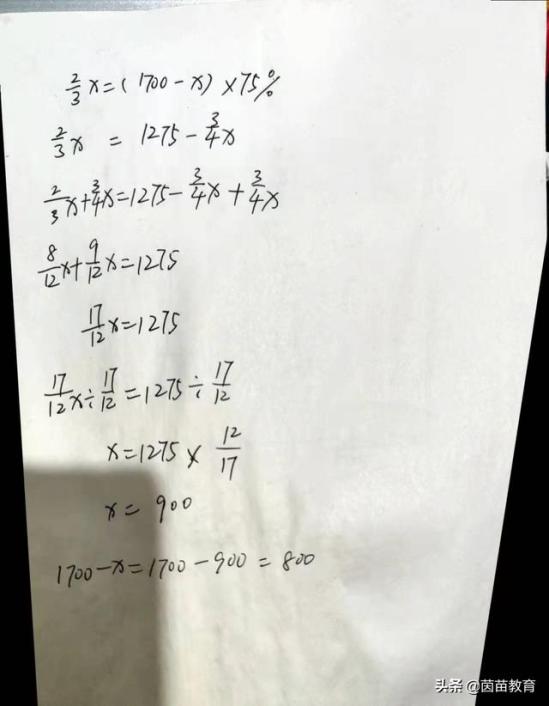 2/3 x=(1700-x)×75%
2/3 x = 1275-3/4 x
2/3 x+3/4 x=1275-3/4 x+3/4 x
8/12 x+9/12 x=1275
17/12 x=1275
17/12 x÷17/12=1275÷17/12
x=1275×12/17
x=900
1700-x=1700-900=800
头条 @茵苗教育